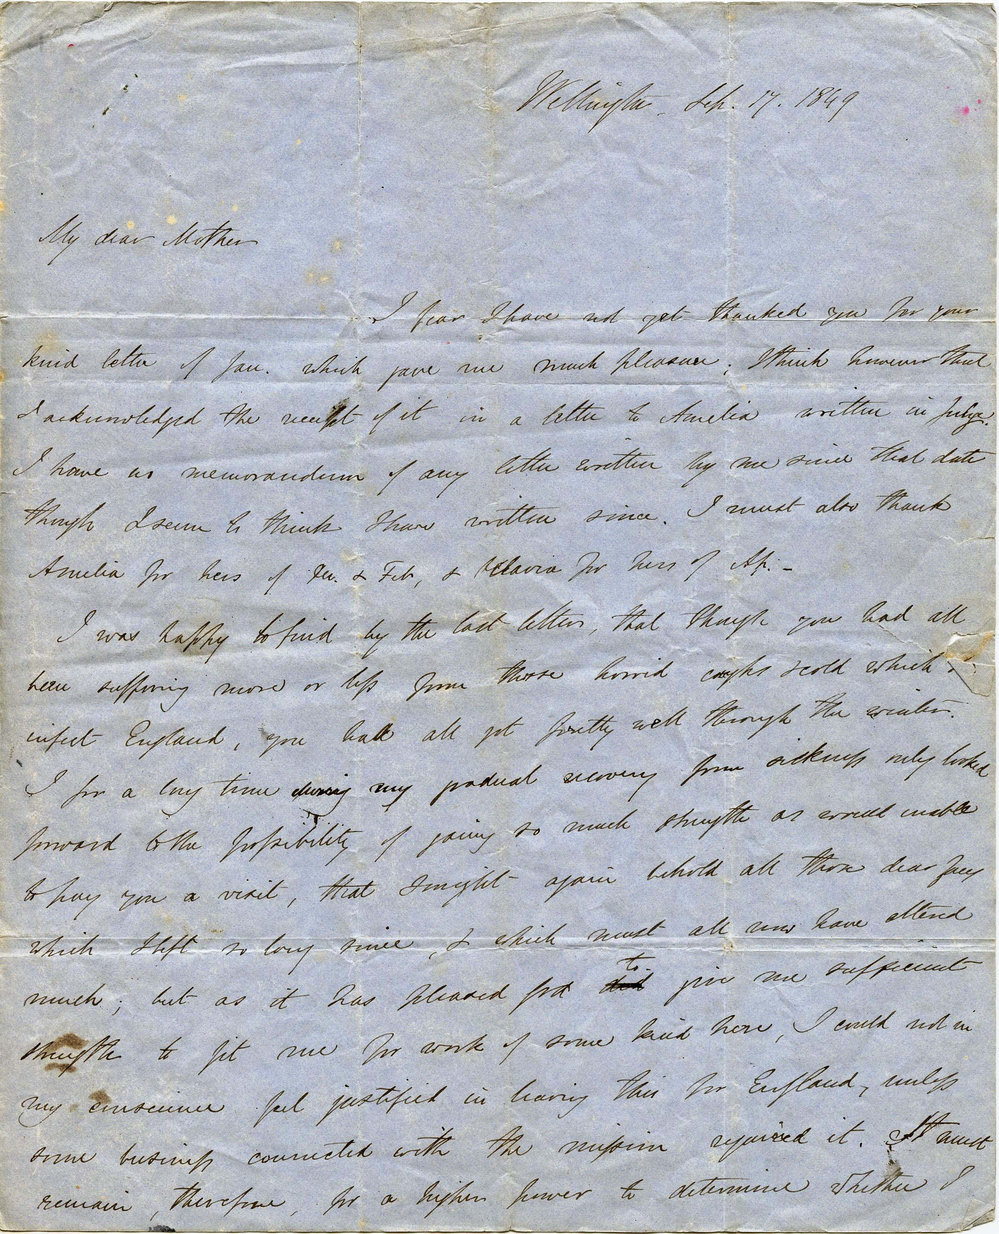 Wellington Sep. 17. 1849
My dear Mother
I fear I have not yet thanked you for your
kind letter of Jan. which gave me much pleasure; I think however that
I acknowledged the receipt of it in a letter to Amelia written in July.
I have no memorandum of any letter written by me since that date
though I seem to think I have written since. I must also thank
Amelia for hers of & Feb, & for hers of Ap. –
I was happy to find by the last letters, that though you had all
been suffering more or less from those horrid coughs & cold which
infect England, you had all got pretty well through the winter.
I for a long time during my gradual recovery from sickness only looked
forward to the possibility of gaining so much strength as would enable
to pay you a visit, that I might again behold all those dear faces
which I left so long since, & which must all now have altered
much; but as it has pleased God to give me sufficient
strength to fit me for work of some kind here, I could not in
my conscience feel justified in leaving this for England, unless
some business connected with the mission required it. It must
remain, therefore, for a higher power to determine whether I